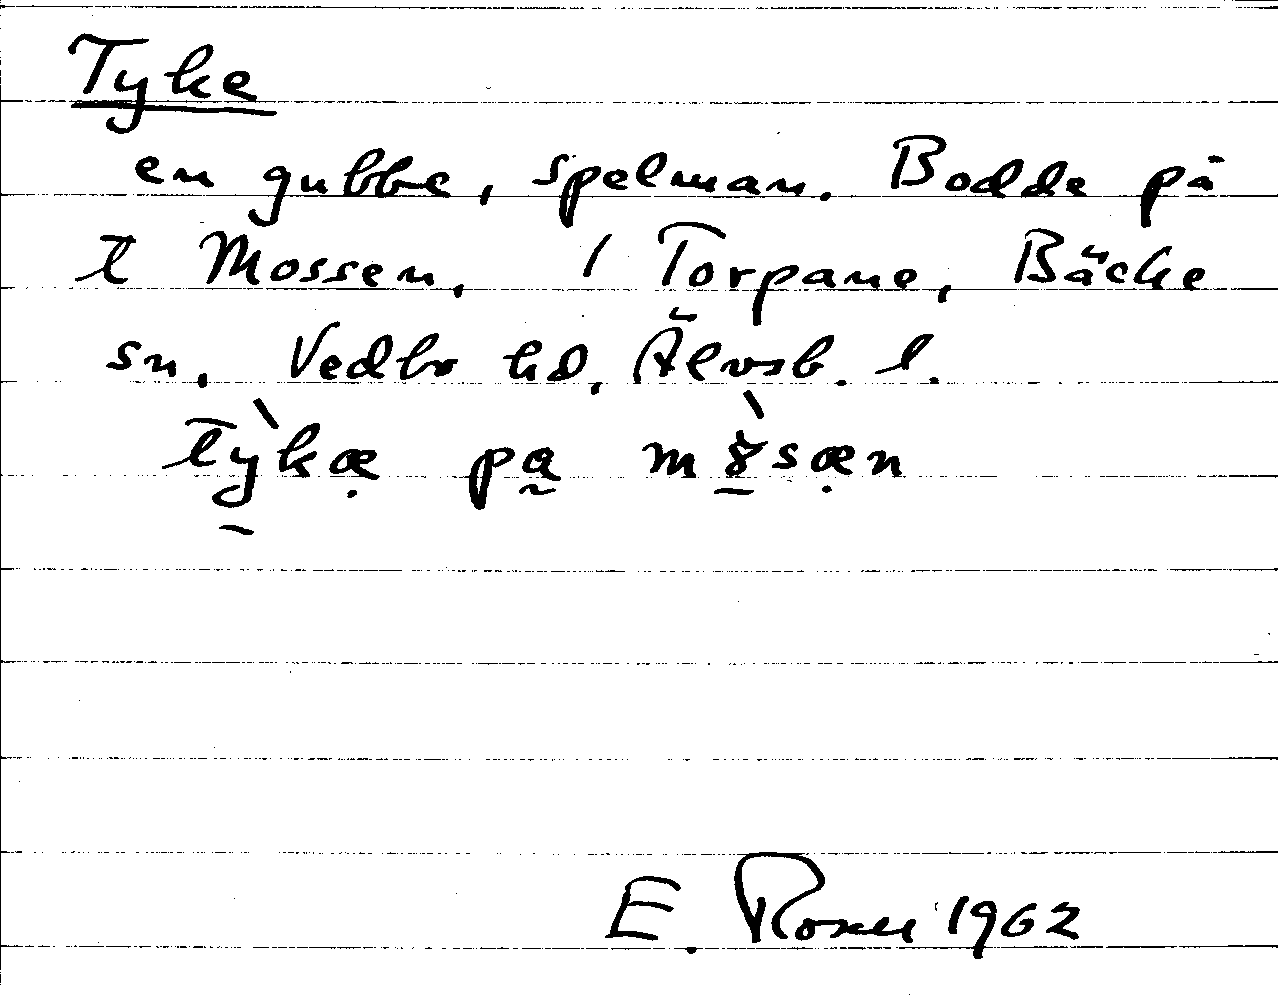 Tyke
en gubbe, spelman. Bodde på
t Mossen, 1 Torpane, Bäcke
sn, Vedbo hd, Älvsb. l.
tỳ̠kæ̣ pa̰ m8̠̀sæ̣n
E. 1962